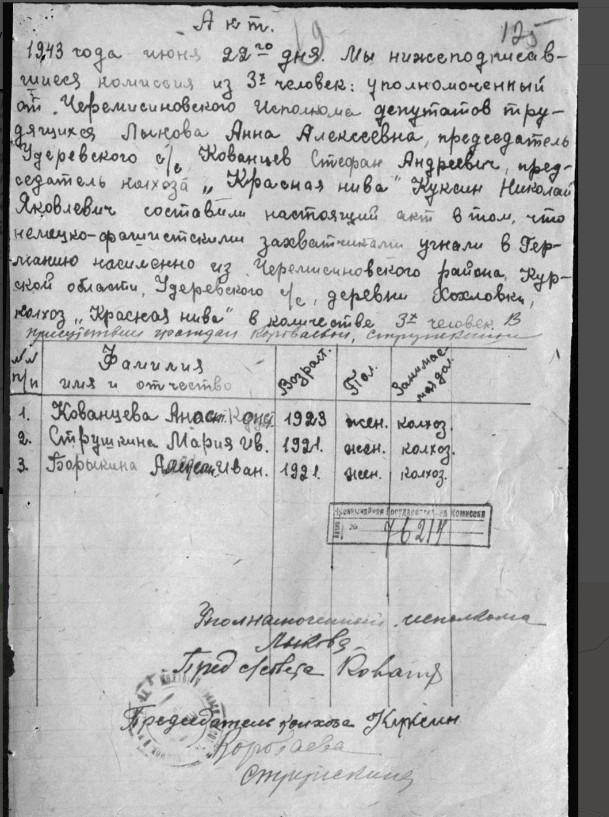 Акт.
19
125
1943 года июня 22го дня. Мы нижеподписав-
шиеся комиссия из 3х человек: уполномоченный
от Черемисиновского Исполкома депутатов тру-
дящихся Лыкова Анна Алексеевна, председатель
Удеревского с/с Кованцев Стефан Андреевич, пред-
седатель колхоза „Красная нива" Куксин Николай
Яковлевич составили настоящий акт в том, что
немецко-фашистскими захватчиками угнали в Гер-
манию насиленно из Черемисиновского района, Кур-
ской области, Удеревского с/с, деревни Хохловки,
колхоз „Красная нива" в количестве 3х человек. В
присутствии граждан Коробаевой, Струшкиной
№№ п/п Фамилия имя и отчество Возраст. Пол. Занимае-
1. Кованцева 1923 жен. колхоз.
2. Струшкина Мария Ив. 1921. жен. колхоз.
3. Барыкина Иван. 1921. жен. колхоз.
Чрезвычайная Государственная Комиссия
№
Уполномоченный исполкома
Лыкова
Пред с/совета
Председатель колхоза Куксин
Коробаева
Струшкина